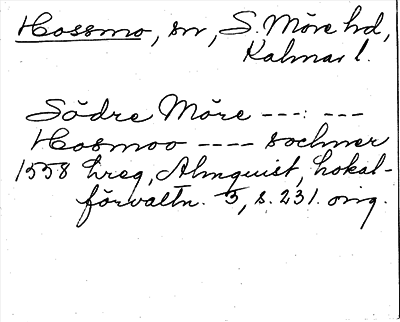 Hossmo, sn, S. Möre hd,
Kalmar l.
Södre Möre ---:---
Hosmoo ---- sochner
1558 hreg, Almquist, Lokal-
förvaltn. 3, s. 231. orig.